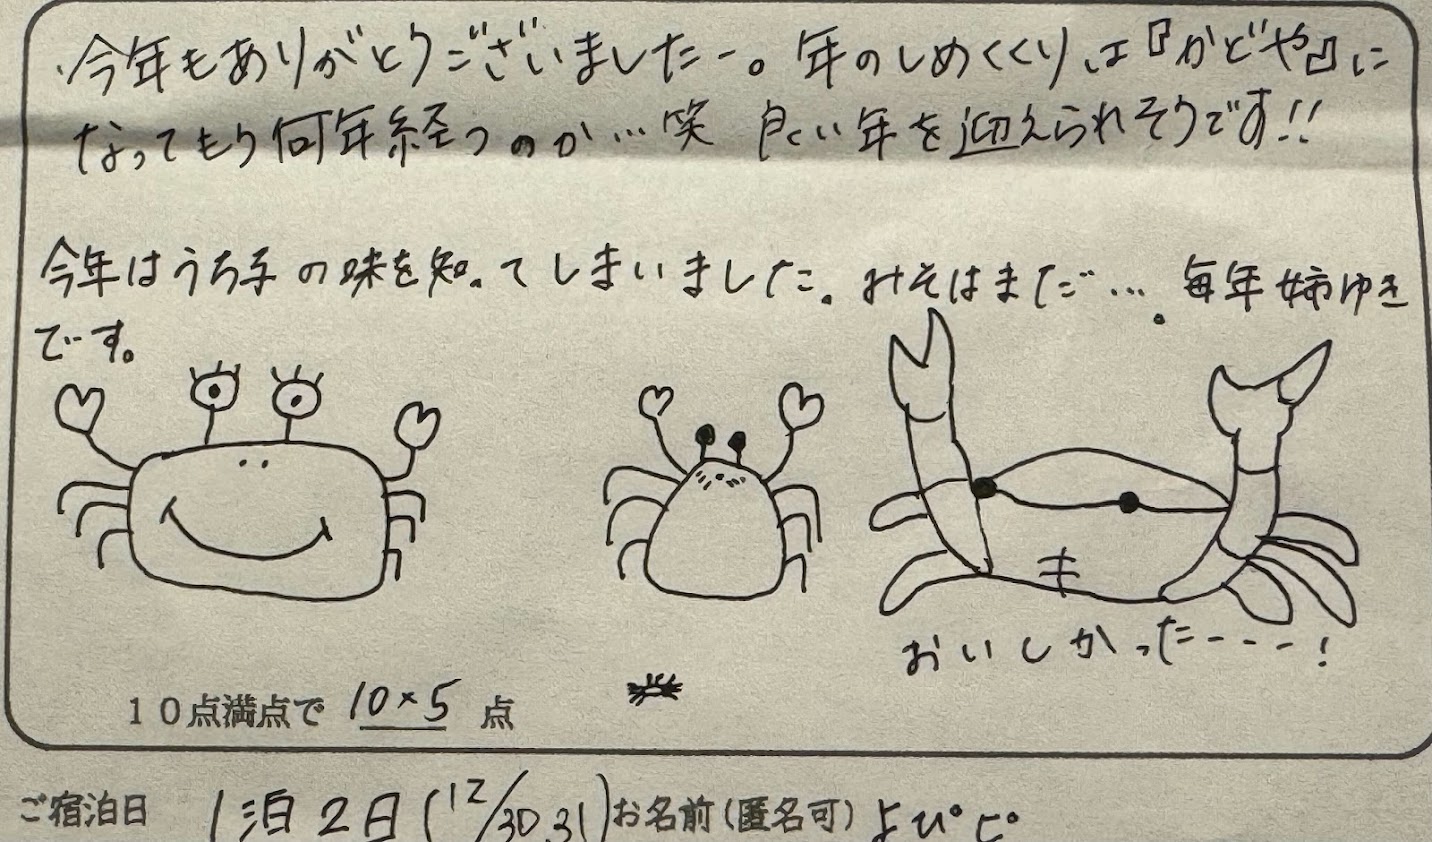 今年もありがとうございましたー。年のしめくくりは『かどや』に
なってもう何年経つのか…笑 良い年を迎えられそうです!!
今年はうち子の味を知ってしまいました。みそはまだ…。毎年姉ゆき
です。
おいしかったーーー!
10点満点で 10×5 点
ご宿泊日 1泊2日(12/30.31) お名前(匿名可) よぴぴ